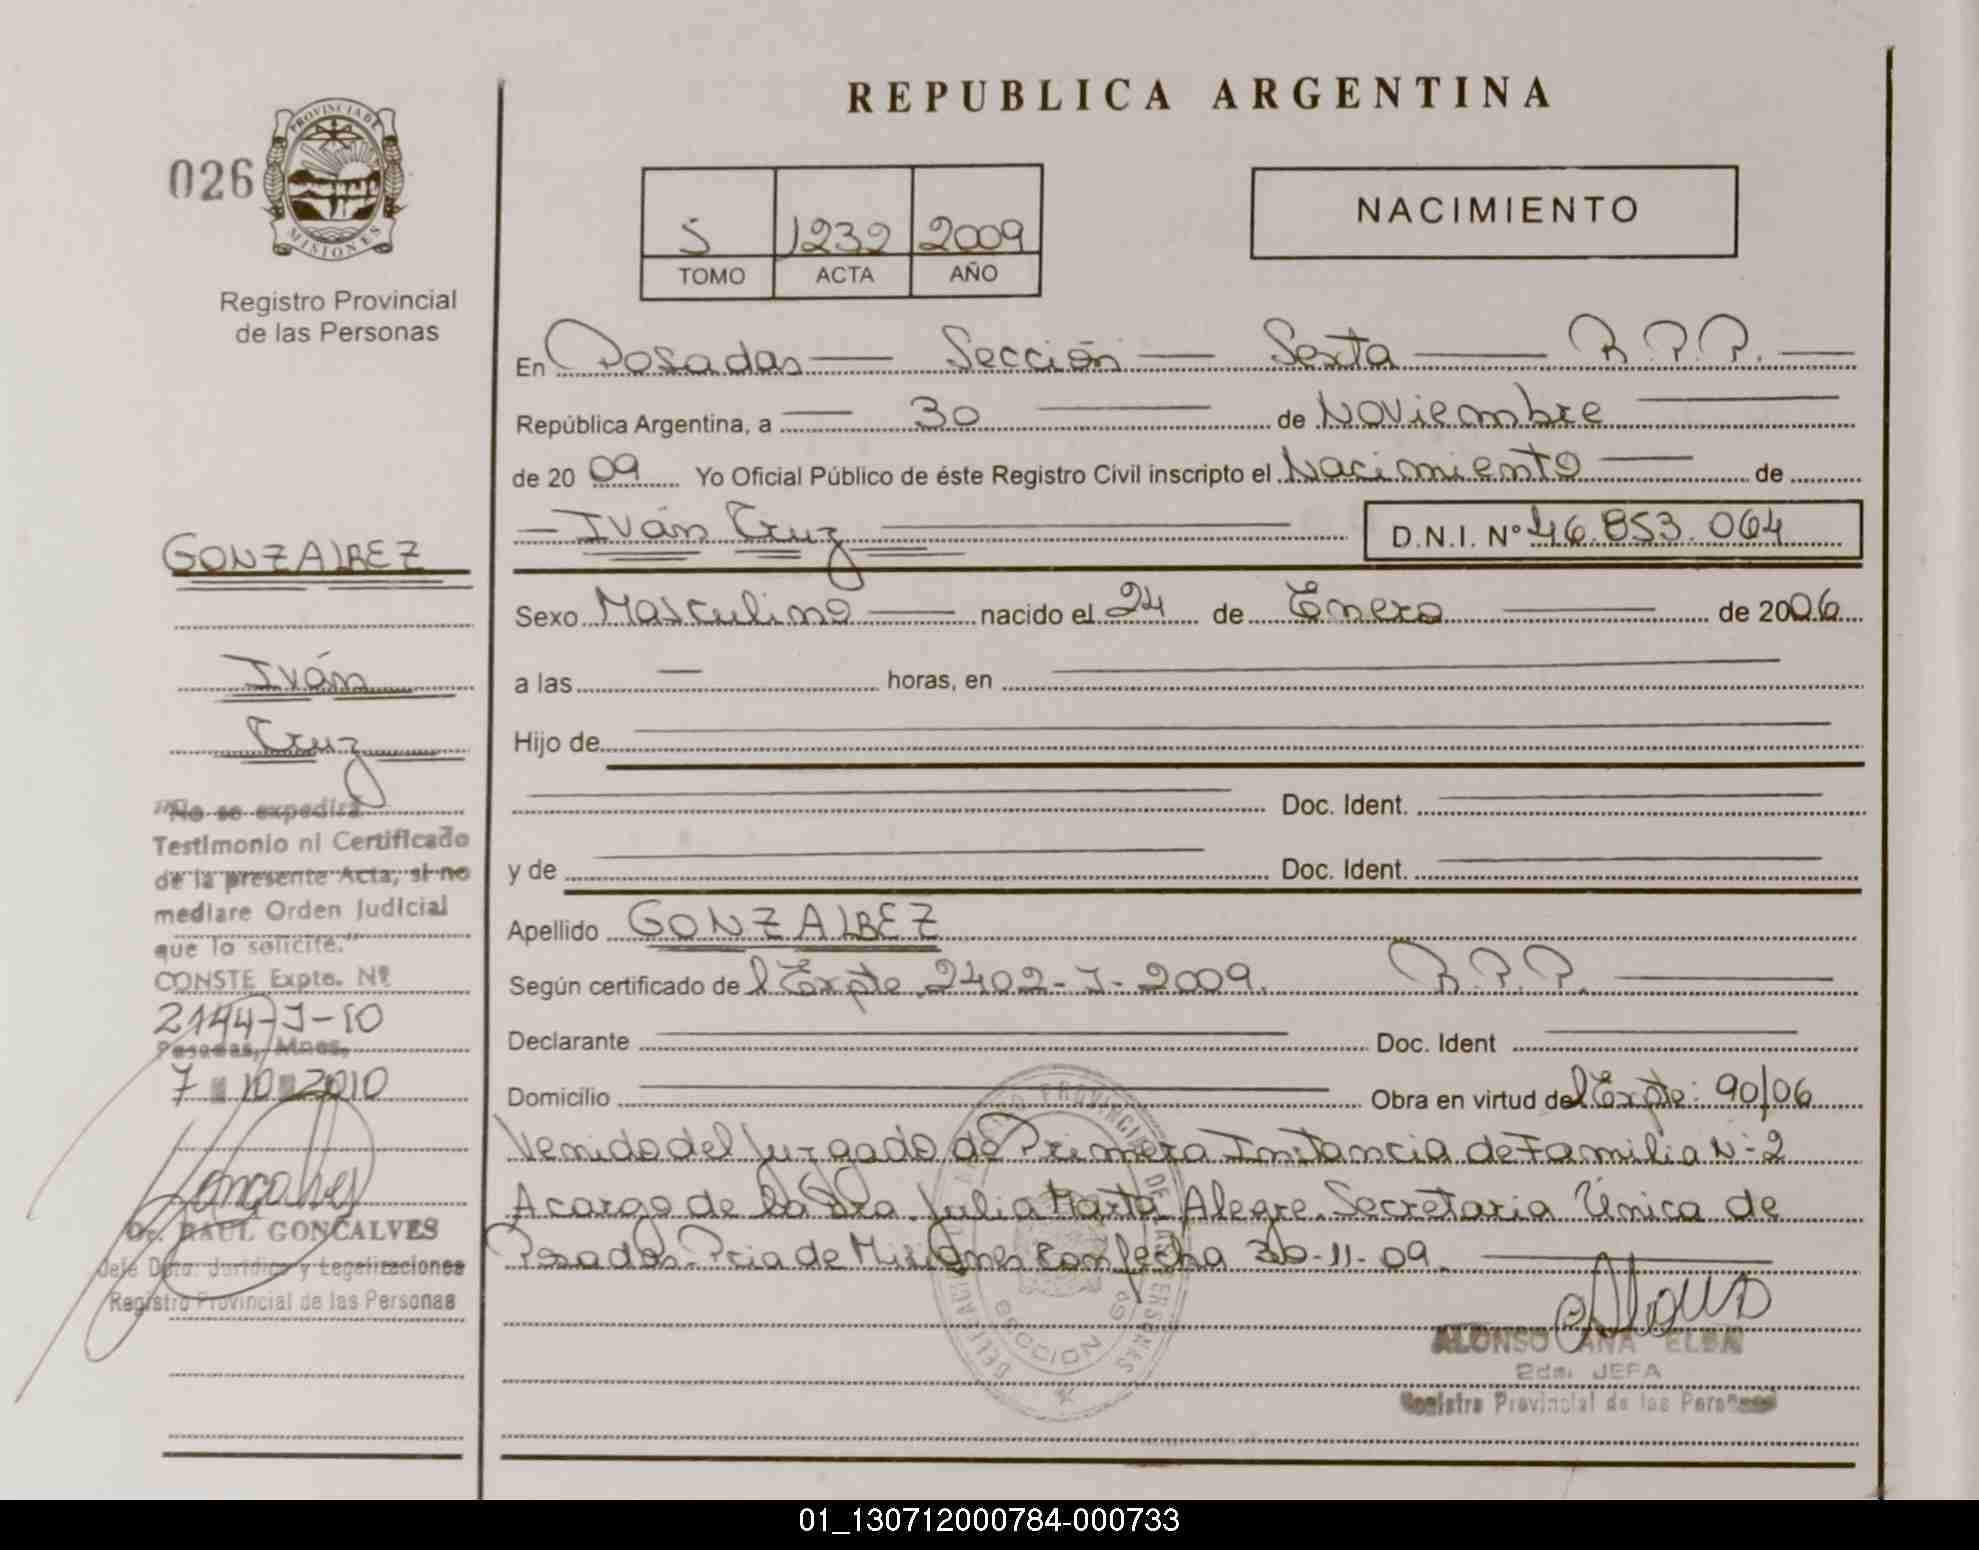 REPUBLICA ARGENTINA
026
PROVINCIA DE
MISIONES
Registro Provincial
de las Personas
5 1232 2009
TOMO ACTA AÑO
NACIMIENTO
En Posadas — Sección — Sexta — R.P.P. —
República Argentina, a — 30 — de Noviembre —
de 20 09 Yo Oficial Público de éste Registro Civil inscripto el Nacimiento — de
— Iván Cruz — D.N.I. Nº 46.853.064
Sexo Masculino — nacido el 24 de Enero — de 2006
a las — horas, en —
Hijo de —
— Doc. Ident. —
y de — Doc. Ident. —
Apellido GONZALBEZ
Según certificado del Expte 2402-J-2009. R.P.P. —
Declarante — Doc. Ident —
Domicilio — Obra en virtud del Expte: 90/06
Venido del Juzgado de Primera Instancia de Familia Nº 2
A cargo de la Dra. Julia Marta Alegre. Secretaria Única de
Posadas. Pcia de Misiones con fecha 30-11-09. —
ALONSO ANA ELBA
2da. JEFA
Registro Provincial de las Personas
GONZALBEZ
Iván
Cruz
"No se expedirá
Testimonio ni Certificado
de la presente Acta, si no
mediare Orden Judicial
que lo solicite."
CONSTE Expte. Nº
2144-J-10
Posadas, Mnes,
7 10 2010
Dr. RAUL GONCALVES
Jefe Dpto. Jurídico y Legalizaciones
Registro Provincial de las Personas
01_130712000784-000733